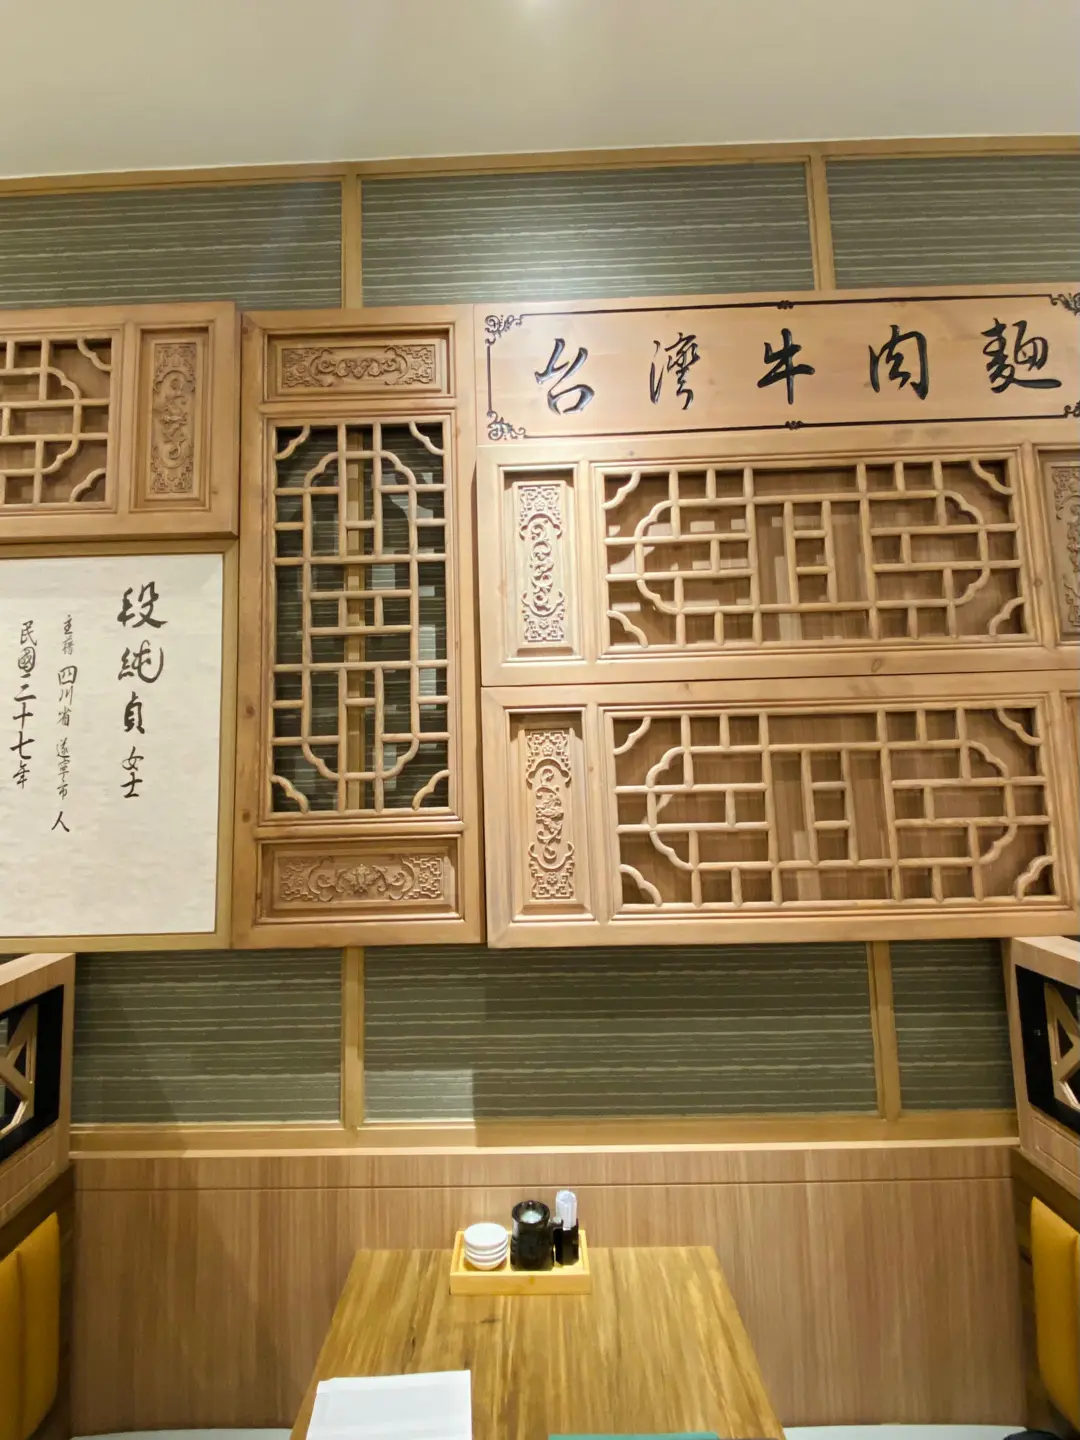 台灣牛肉麵
段純貞女士
主籍四川省遂寧市人
民國二十七年